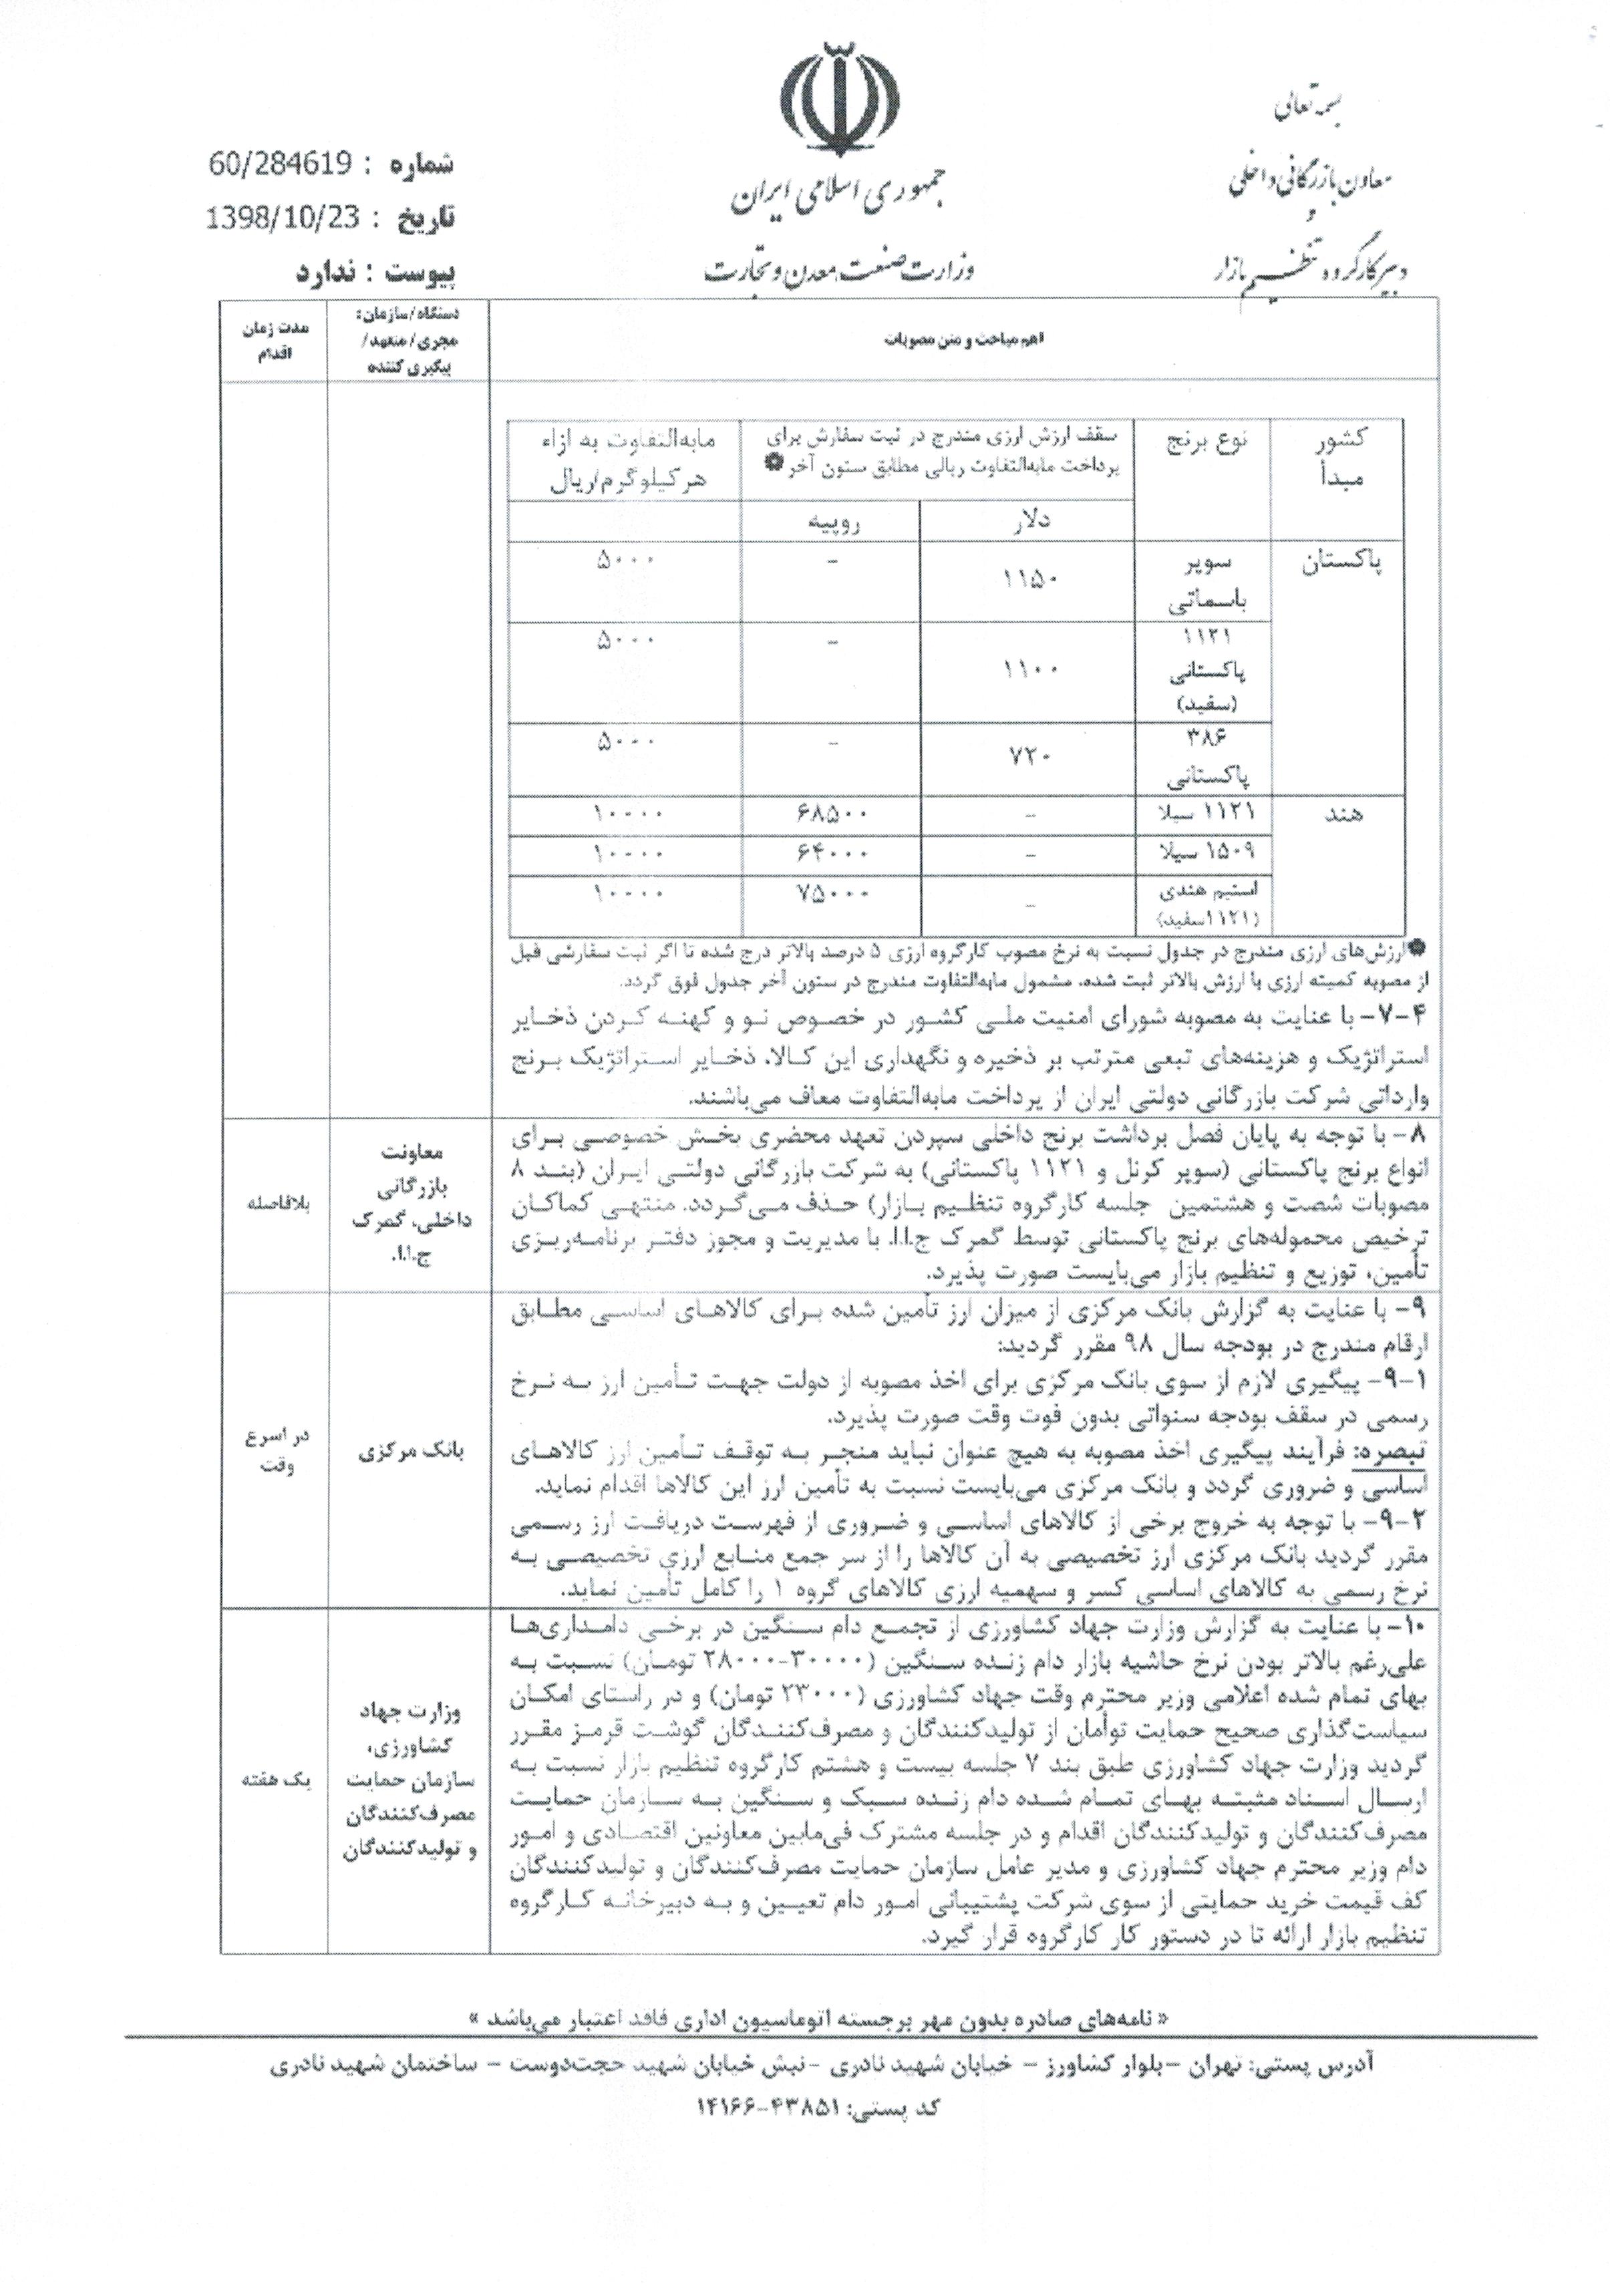 بسمه تعالی
معاون بازرگانی داخلی
و
دبیر کارگروه تنظیم بازار
جمهوری اسلامی ایران
وزارت صنعت، معدن و تجارت
شماره : 60/284619
تاریخ : 1398/10/23
پیوست : ندارد
اهم مباحث و متن مصوبات
دستگاه/سازمان:
مجری/متعهد/
پیگیری کننده
مدت زمان
اقدام
کشور
مبدأ
نوع برنج
سقف ارزش ارزی مندرج در ثبت سفارش برای
پرداخت مابه‌التفاوت ریالی مطابق ستون آخر
مابه‌التفاوت به ازاء
هر کیلوگرم/ریال
دلار
روپیه
پاکستان
سوپر
باسماتی
۱۱۵۰
-
۵۰۰۰
۱۱۲۱
پاکستانی
(سفید)
۱۱۰۰
-
۵۰۰۰
۳۸۶
پاکستانی
۷۲۰
-
۵۰۰۰
هند
۱۱۲۱ سیلا
-
۶۸۵۰۰
۱۰۰۰۰
۱۵۰۹ سیلا
-
۶۴۰۰۰
۱۰۰۰۰
استیم هندی
(۱۱۲۱سفید)
-
۷۵۰۰۰
۱۰۰۰۰
ارزش‌های ارزی مندرج در جدول نسبت به نرخ مصوب کارگروه ارزی ۵ درصد بالاتر درج شده تا اگر ثبت سفارشی قبل
از مصوبه کمیته ارزی با ارزش بالاتر ثبت شده، مشمول مابه‌التفاوت مندرج در ستون آخر جدول فوق گردد.
۷-۴- با عنایت به مصوبه شورای امنیت ملی کشور در خصوص نو و کهنه کردن ذخایر
استراتژیک و هزینه‌های تبعی مترتب بر ذخیره و نگهداری این کالا، ذخایر استراتژیک برنج
وارداتی شرکت بازرگانی دولتی ایران از پرداخت مابه‌التفاوت معاف می‌باشند.
۸- با توجه به پایان فصل برداشت برنج داخلی سپردن تعهد محضری بخش خصوصی برای
انواع برنج پاکستانی (سوپر کرنل و ۱۱۲۱ پاکستانی) به شرکت بازرگانی دولتی ایران (بند ۸
مصوبات شصت و هشتمین جلسه کارگروه تنظیم بازار) حذف می‌گردد. منتهی کماکان
ترخیص محموله‌های برنج پاکستانی توسط گمرک ج.ا.ا. با مدیریت و مجوز دفتر برنامه‌ریزی
تأمین، توزیع و تنظیم بازار می‌بایست صورت پذیرد.
معاونت
بازرگانی
داخلی، گمرک
ج.ا.ا.
بلافاصله
۹- با عنایت به گزارش بانک مرکزی از میزان ارز تأمین شده برای کالاهای اساسی مطابق
ارقام مندرج در بودجه سال ۹۸ مقرر گردید:
۹-۱- پیگیری لازم از سوی بانک مرکزی برای اخذ مصوبه از دولت جهت تأمین ارز به نرخ
رسمی در سقف بودجه سنواتی بدون فوت وقت صورت پذیرد.
تبصره: فرآیند پیگیری اخذ مصوبه به هیچ عنوان نباید منجر به توقف تأمین ارز کالاهای
اساسی و ضروری گردد و بانک مرکزی می‌بایست نسبت به تأمین ارز این کالاها اقدام نماید.
۹-۲- با توجه به خروج برخی از کالاهای اساسی و ضروری از فهرست دریافت ارز رسمی
مقرر گردید بانک مرکزی ارز تخصیصی به آن کالاها را از سر جمع منابع ارزی تخصیصی به
نرخ رسمی به کالاهای اساسی کسر و سهمیه ارزی کالاهای گروه ۱ را کامل تأمین نماید.
بانک مرکزی
در اسرع
وقت
۱۰- با عنایت به گزارش وزارت جهاد کشاورزی از تجمع دام سنگین در برخی دامداری‌ها
علی‌رغم بالاتر بودن نرخ حاشیه بازار دام زنده سنگین (۳۰۰۰۰-۲۸۰۰۰ تومان) نسبت به
بهای تمام شده اعلامی وزیر محترم وقت جهاد کشاورزی (۲۳۰۰۰ تومان) و در راستای امکان
سیاست‌گذاری صحیح حمایت توأمان از تولیدکنندگان و مصرف‌کنندگان گوشت قرمز مقرر
گردید وزارت جهاد کشاورزی طبق بند ۷ جلسه بیست و هشتم کارگروه تنظیم بازار نسبت به
ارسال اسناد مثبته بهای تمام شده دام زنده سبک و سنگین به سازمان حمایت
مصرف‌کنندگان و تولیدکنندگان اقدام و در جلسه مشترک فی‌مابین معاونین اقتصادی و امور
دام وزیر محترم جهاد کشاورزی و مدیر عامل سازمان حمایت مصرف‌کنندگان و تولیدکنندگان
کف قیمت خرید حمایتی از سوی شرکت پشتیبانی امور دام تعیین و به دبیرخانه کارگروه
تنظیم بازار ارائه تا در دستور کار کارگروه قرار گیرد.
وزارت جهاد
کشاورزی،
سازمان حمایت
مصرف‌کنندگان
و تولیدکنندگان
یک هفته
« نامه‌های صادره بدون مهر برجسته اتوماسیون اداری فاقد اعتبار می‌باشد »
آدرس پستی: تهران –بلوار کشاورز – خیابان شهید نادری –نبش خیابان شهید حجت‌دوست – ساختمان شهید نادری
کد پستی: ۴۳۸۵۱-۱۴۱۶۶